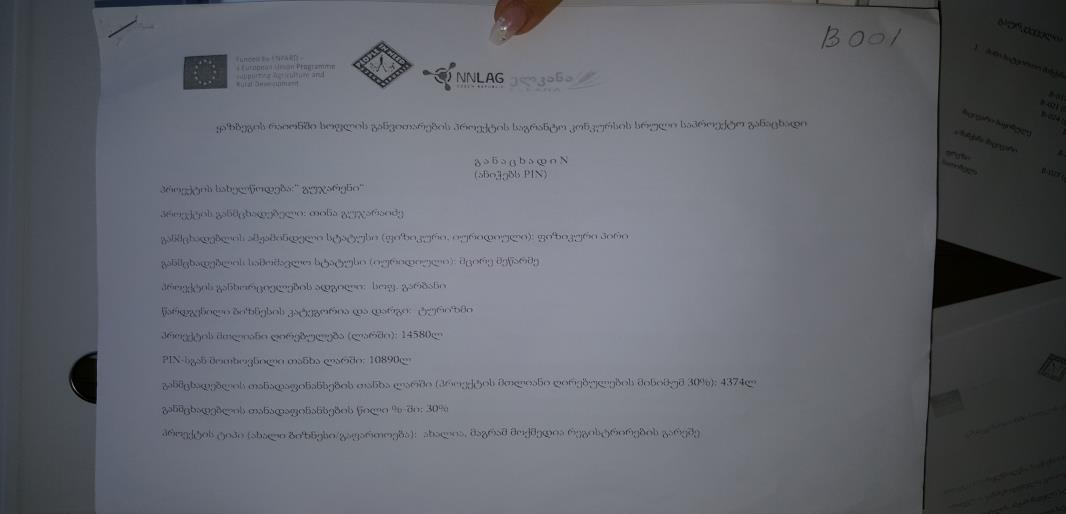 B 001
Funded by ENPARD –
a European Union Programme
supporting Agriculture and
Rural Development
PEOPLE IN NEED
NNLAG
CZECH REPUBLIC
ელკანა
ყაზბეგის რაიონში სოფლის განვითარების პროექტის საგრანტო კონკურსის სრული საპროექტო განაცხადი
გ ა ნ ა ც ხ ა დ ი N
(ანიჭებს PIN)
პროექტის სახელწოდება:" გუჯარენი"
პროექტის განმცხადებელი: თინა გუჯარაიძე
განმცხადებლის ამჟამინდელი სტატუსი (ფიზიკური, იურიდიული): ფიზიკური პირი
განმცხადებლის სამომავლო სტატუსი (იურიდიული): მცირე მეწარმე
პროექტის განხორციელების ადგილი: სოფ. გარბანი
წარდგენილი ბიზნესის კატეგორია და დარგი: ტურიზმი
პროექტის მთლიანი ღირებულება (ლარში): 14580ლ
PIN-სგან მოთხოვნილი თანხა ლარში: 10890ლ
განმცხადებლის თანადაფინანსების თანხა ლარში (პროექტის მთლიანი ღირებულების მინიმუმ 30%): 4374ლ
განმცხადებლის თანადაფინანსების წილი %-ში: 30%
პროექტის ტიპი (ახალი ბიზნესი/გაფართოება): ახალია, მაგრამ მოქმედია რეგისტრირების გარეშე